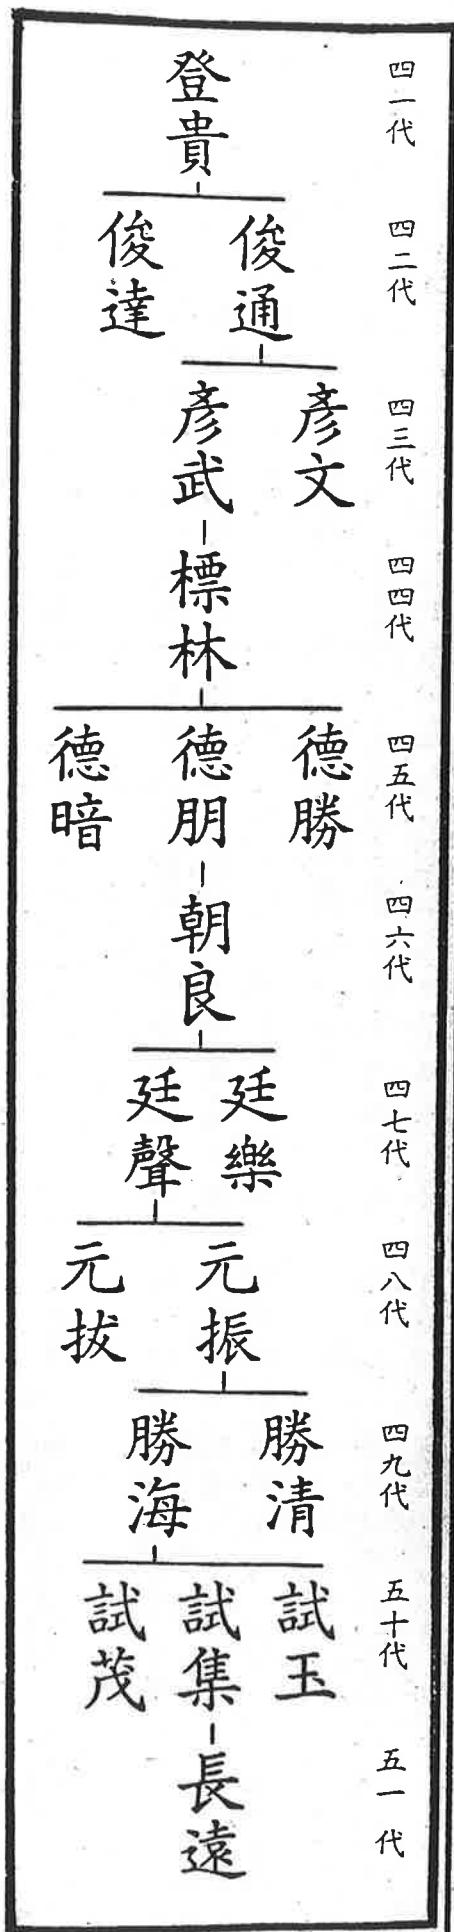 四一代
登貴
四二代
俊通
俊達
四三代
彥文
彥武
四四代
標林
四五代
德勝
德朋
德暗
四六代
朝良
四七代
廷樂
廷聲
四八代
元振
元拔
四九代
勝清
勝海
五十代
試玉
試集
試茂
五一代
長遠